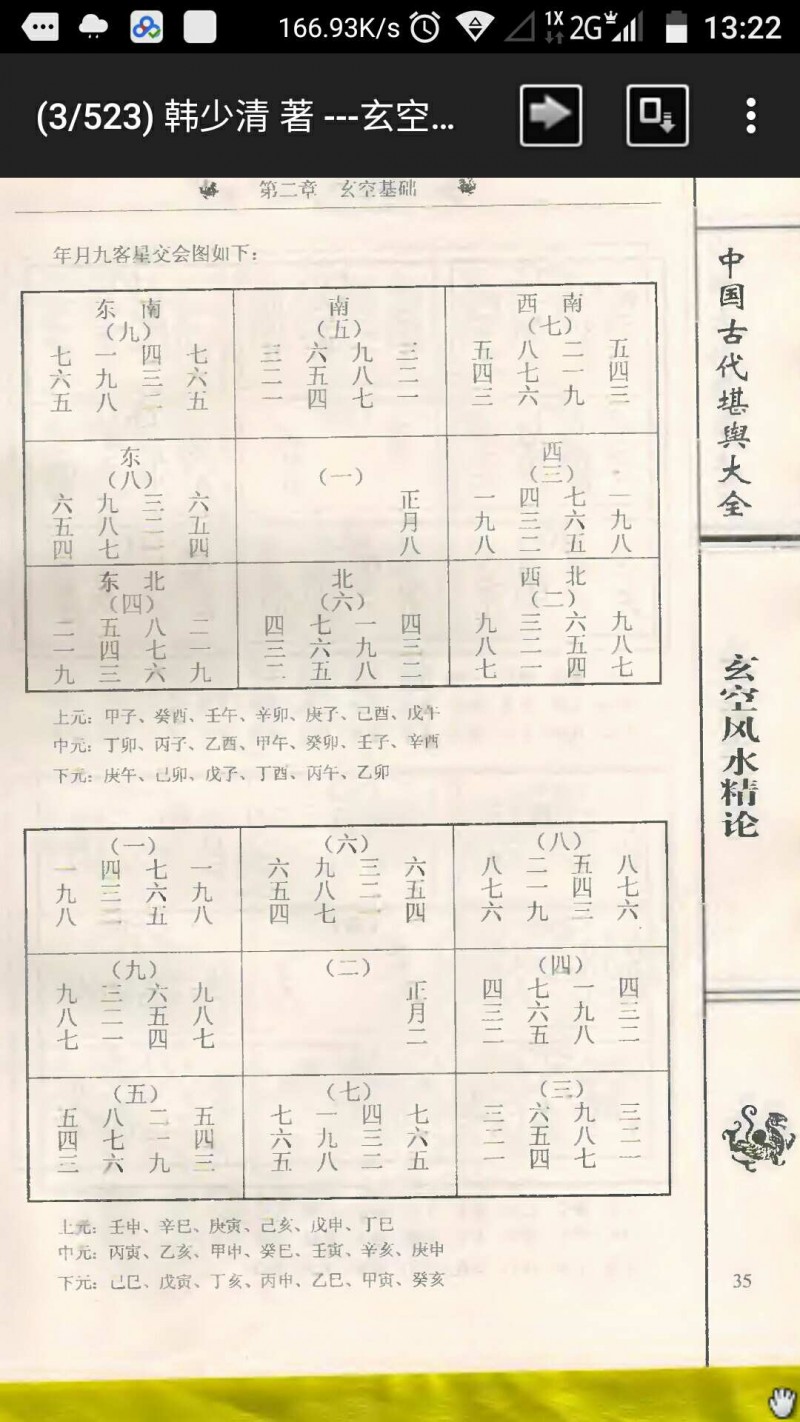 166.93K/s 1X 2G 13:22
(3/523) 韩少清 著 ---玄空...
第二章 玄空基础
年月九客星交会图如下：
东 南
（九）
七 一 四 七
六 九 三 六
五 八 二 五
南
（五）
三 六 九 三
二 五 八 二
一 四 七 一
西 南
（七）
五 八 二 五
四 七 一 四
三 六 九 三
东
（八）
六 九 三 六
五 八 二 五
四 七 一 四
（一）
正
月
八
西
（三）
一 四 七 一
九 三 六 九
八 二 五 八
东 北
（四）
二 五 八 二
一 四 七 一
九 三 六 九
北
（六）
四 七 一 四
三 六 九 三
二 五 八 二
西 北
（二）
九 三 六 九
八 二 五 八
七 一 四 七
上元：甲子、癸酉、壬午、辛卯、庚子、己酉、戊午
中元：丁卯、丙子、乙酉、甲午、癸卯、壬子、辛酉
下元：庚午、己卯、戊子、丁酉、丙午、乙卯
（一）
一 四 七 一
九 三 六 九
八 二 五 八
（六）
六 九 三 六
五 八 二 五
四 七 一 四
（八）
八 二 五 八
七 一 四 七
六 九 三 六
（九）
九 三 六 九
八 二 五 八
七 一 四 七
（二）
正
月
二
（四）
四 七 一 四
三 六 九 三
二 五 八 二
（五）
五 八 二 五
四 七 一 四
三 六 九 三
（七）
七 一 四 七
六 九 三 六
五 八 二 五
（三）
三 六 九 三
二 五 八 二
一 四 七 一
上元：壬申、辛巳、庚寅、己亥、戊申、丁巳
中元：丙寅、乙亥、甲申、癸巳、壬寅、辛亥、庚申
下元：己巳、戊寅、丁亥、丙申、乙巳、甲寅、癸亥
中国古代堪舆大全
玄空风水精论
35